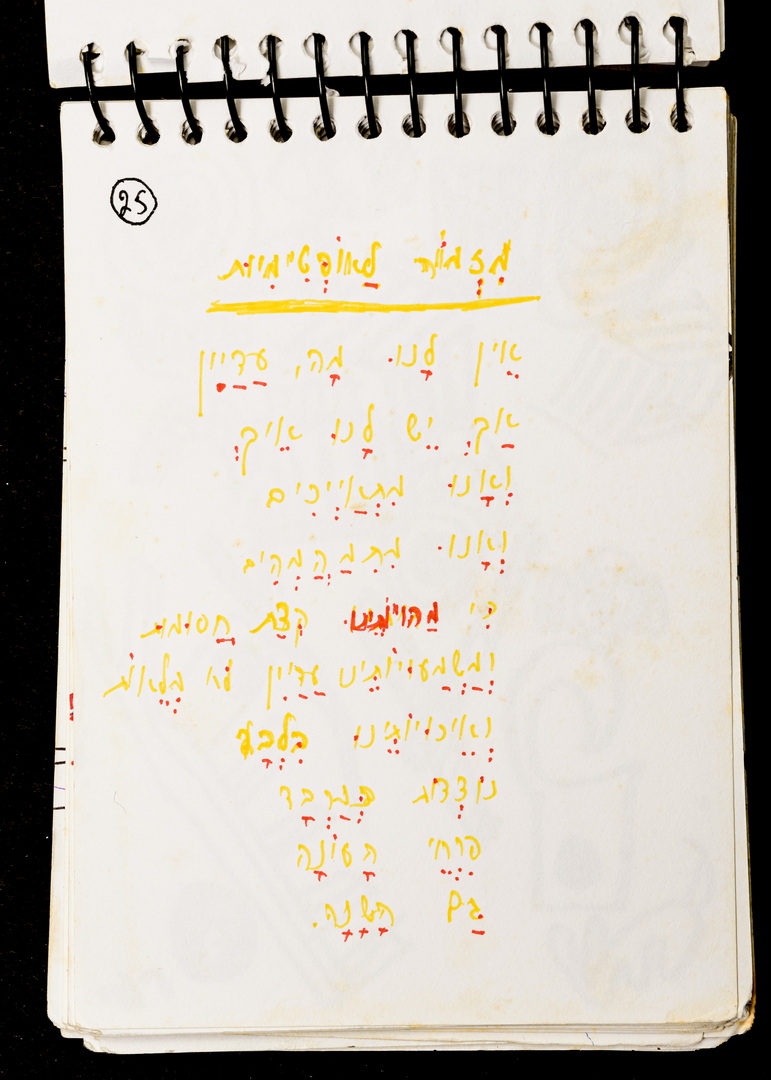 25
מִזְמוֹר לַאוֹפְּטִימִיוּת
אֵין לָנוּ מָה, עֲדַיִן
אַךְ יֵשׁ לָנוּ אֵיךְ
וְאָנוּ מִתְאַיְּכִים
וְאָנוּ מִתְמַהְמְהִים
כִּי מַהוּיוֹתֵינוּ קְצָת חֲסוּמוֹת
וּמַשְׁמָעוּיוֹתֵינוּ עֲדַיִין לֹא מְלֵאוֹת
וְאֵיכוּיוֹתֵינוּ בִּלְבַד
נוֹצְדוֹת כְּמַרְבָד
פִּרְחֵי הָעוֹנָה
גַּם הַשָּׁנָה.